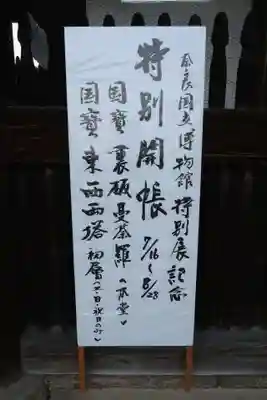 奈良国立博物館 特別展記念
特別開帳 7/16〜8/28
国寶 裏板曼荼羅（本堂）
国寶 東西両塔 初層（土・日・祝日のみ）